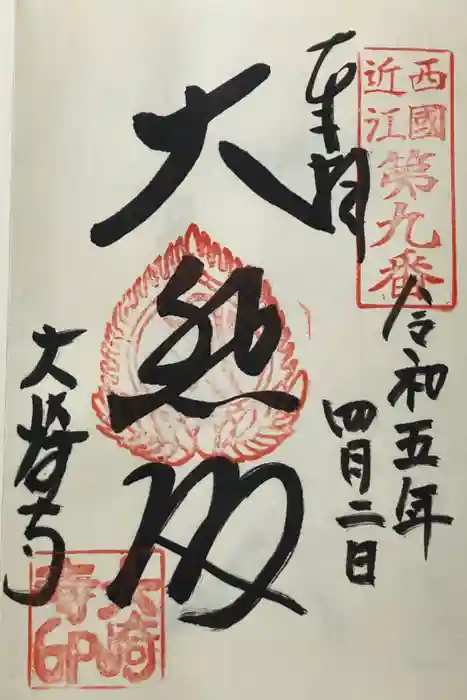 西國
近江
第九番
奉拝
令和五年
四月二日
大悲閣
大崎寺
大崎
寺印